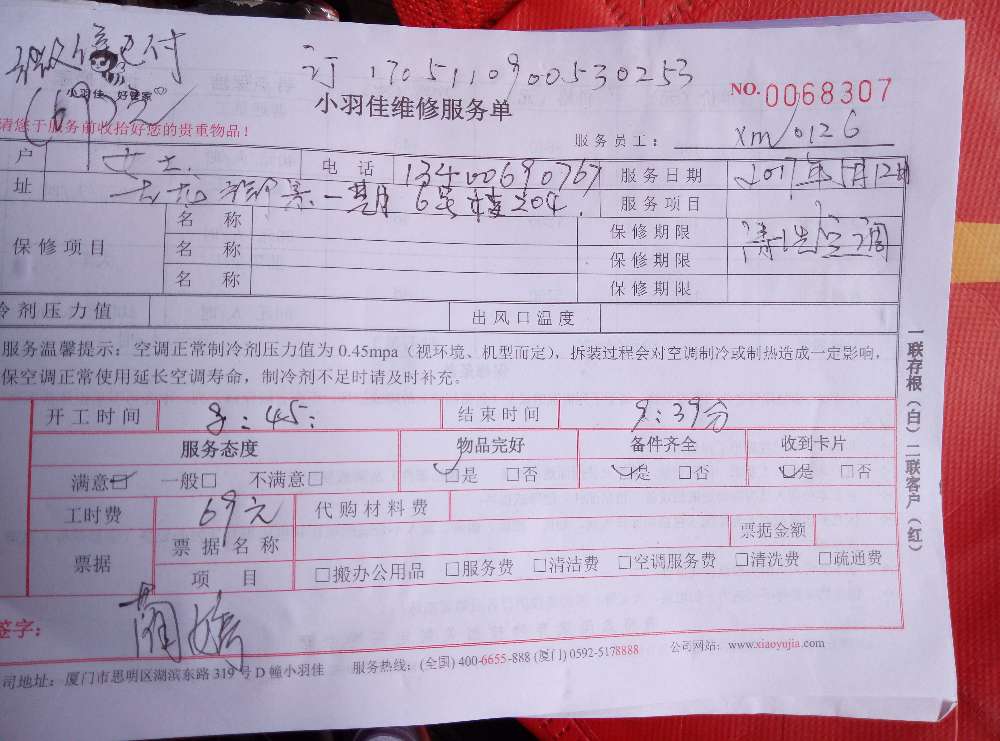 微信已付
订1705110900530253
小羽佳 好管家
(69元
小羽佳维修服务单
NO.0068307
请您于服务前收拾好您的贵重物品！
服务员工：xm0126
户 女士 电话 13400690767 服务日期 2017年5月12日
址 一期6号楼204 服务项目 清洗空调
保修项目 名称 保修期限
名称 保修期限
名称 保修期限
冷剂压力值 出风口温度
服务温馨提示：空调正常制冷剂压力值为0.45mpa（视环境、机型而定），拆装过程会对空调制冷或制热造成一定影响，
保空调正常使用延长空调寿命，制冷剂不足时请及时补充。
开工时间 8:45: 结束时间 9:39分
服务态度 物品完好 备件齐全 收到卡片
满意☑ 一般□ 不满意□ ☑是 □否 ☑是 □否 ☑是 □否
工时费 69元 代购材料费
票据 票据名称 票据金额
项目 □搬办公用品 □服务费 □清洁费 □空调服务费 □清洗费 □疏通费
签字：
司地址：厦门市思明区湖滨东路319号D幢小羽佳 服务热线：(全国) 400-6655-888 (厦门) 0592-5178888 公司网站：www.xiaoyujia.com
一联存根（白）二联客户（红）